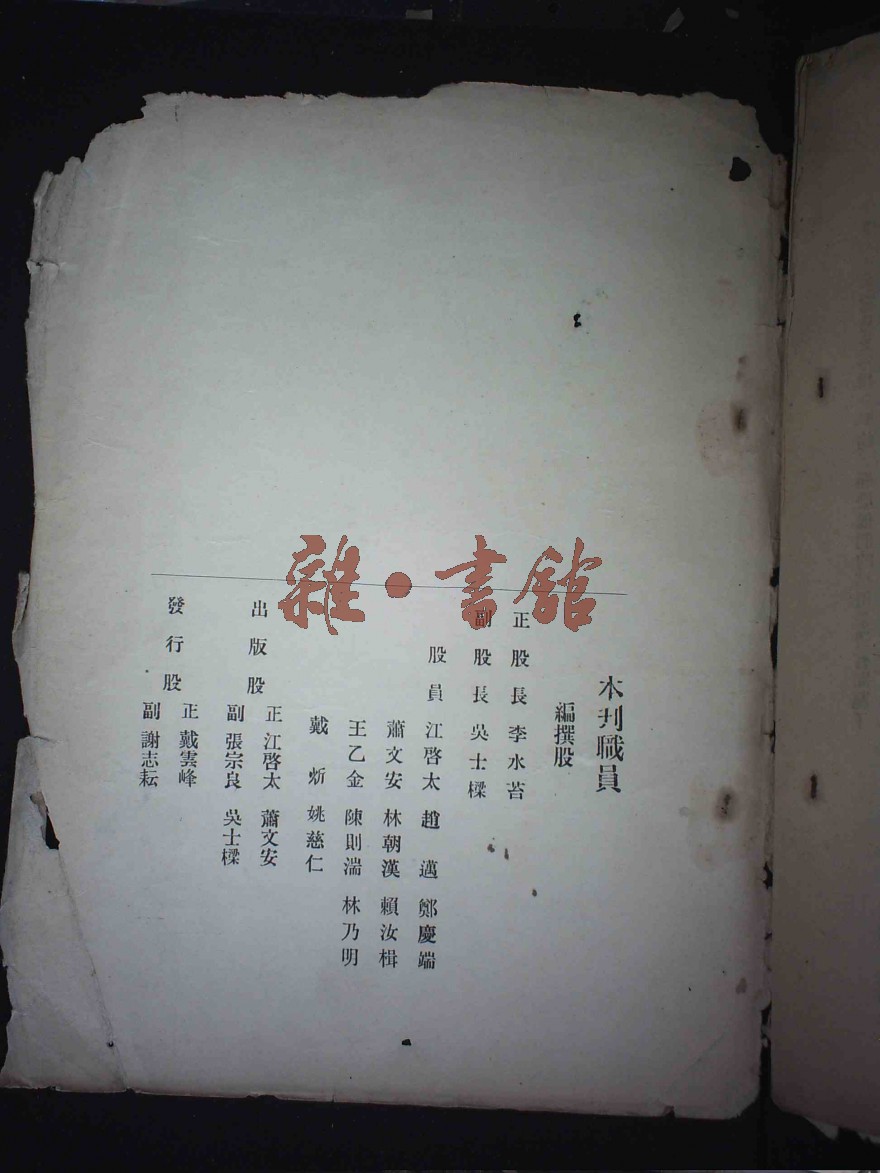 雜·書館
本刋職員
編撰股
正股長 李水苔
副股長 吳士樑
股員 江啓太 趙邁 鄭慶端
蕭文安 林朝漢 賴汝楫
王乙金 陳則湍 林乃明
戴炘 姚慈仁
出版股
正 江啓太 蕭文安
副 張宗良 吳士樑
發行股
正 戴雲峰
副 謝志耘